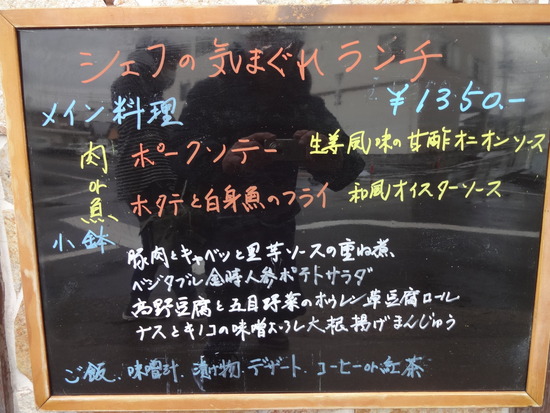 シェフの気まぐれランチ
メイン料理 ¥1350.-
肉 ポークソテー 生姜風味の甘酢オニオンソース
or
魚 ホタテと白身魚のフライ 和風オイスターソース
小鉢
豚肉とキャベツと里芋ソースの重ね煮、
ベジタブル金時人参ポテトサラダ
高野豆腐と五目野菜のホウレン草豆腐ロール
ナスとキノコの味噌おろし大根揚げまんじゅう
ご飯、味噌汁、漬け物、デザート、コーヒーor紅茶